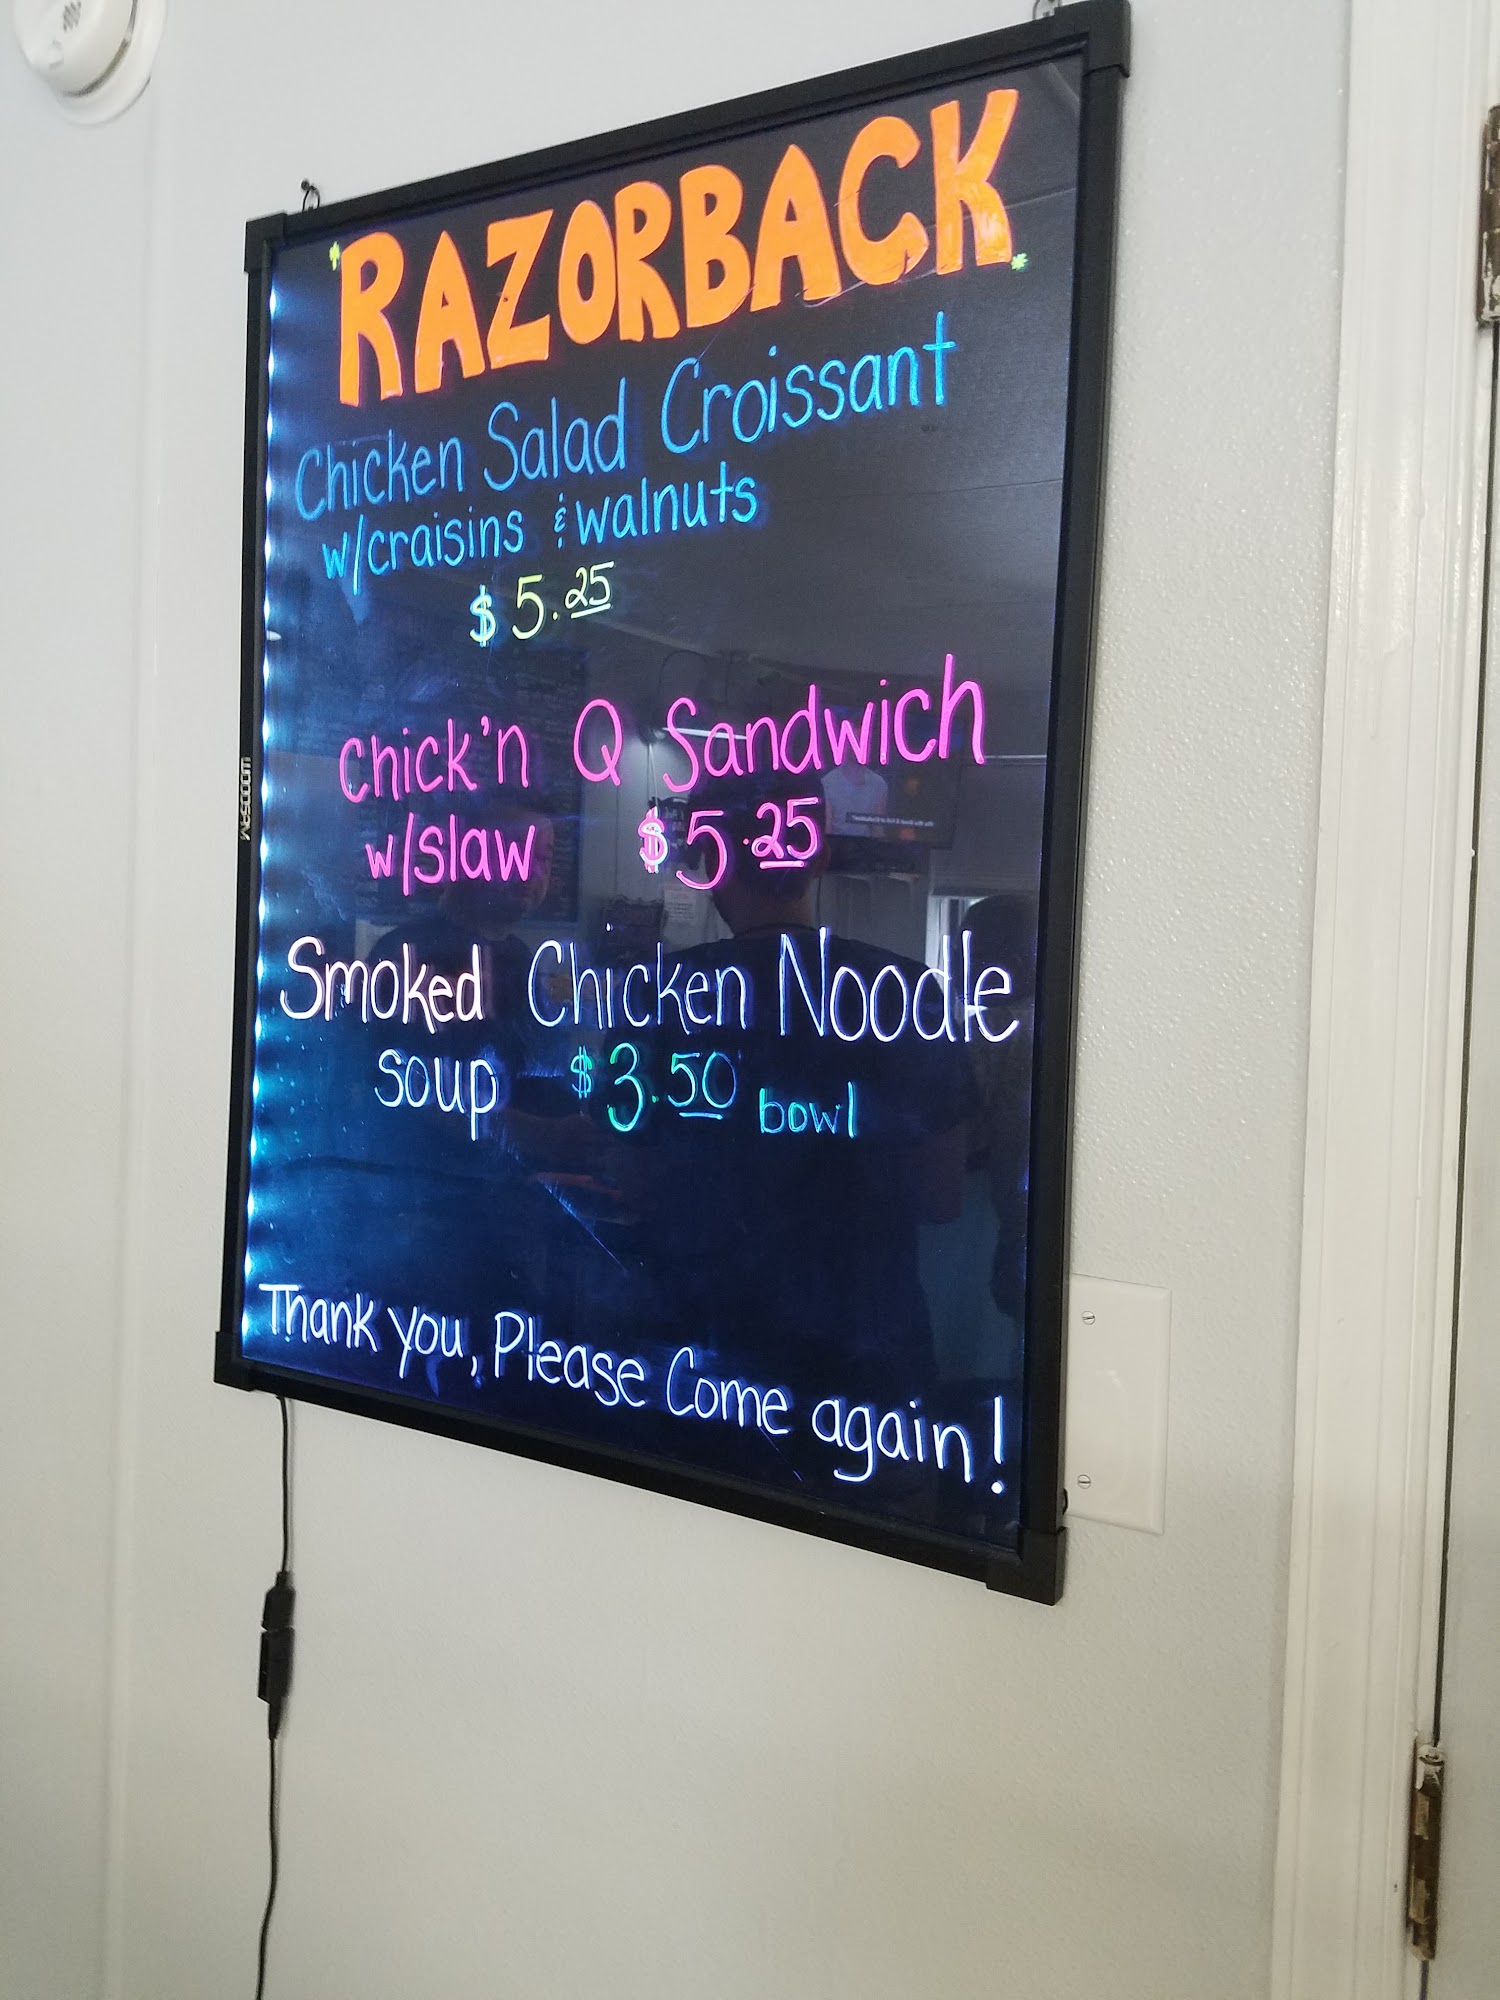 RAZORBACK
Chicken Salad Croissant
w/craisins & walnuts
$5.25
Chick'n Q Sandwich
w/slaw $5.25
Smoked Chicken Noodle
soup $3.50 bowl
Thank you, Please Come again!
WOODSAM